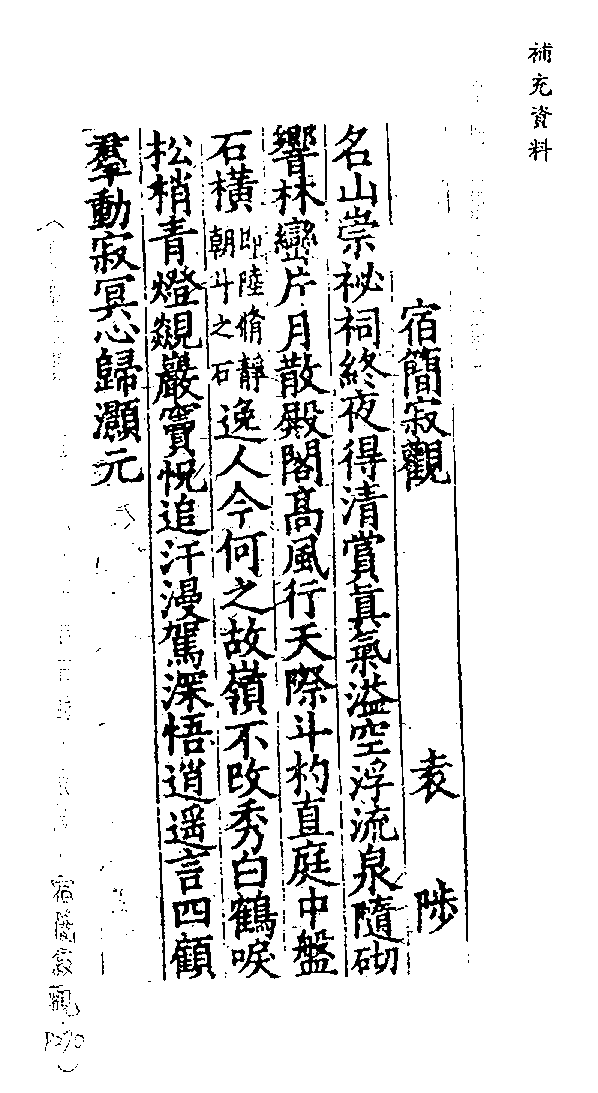 補充資料
宿簡寂觀　袁陟
名山崇祕祠終夜得清賞真氣溢空浮流泉隨砌
響林巒片月散殿閣高風行天際斗杓直庭中盤
石橫即陸脩靜朝斗之石逸人今何之故嶺不改秀白鶴唳
松梢青燈覰巖竇怳追汗漫駕深悟逍遥言四顧
羣動寂冥心歸灝元
宿簡寂觀 P270）